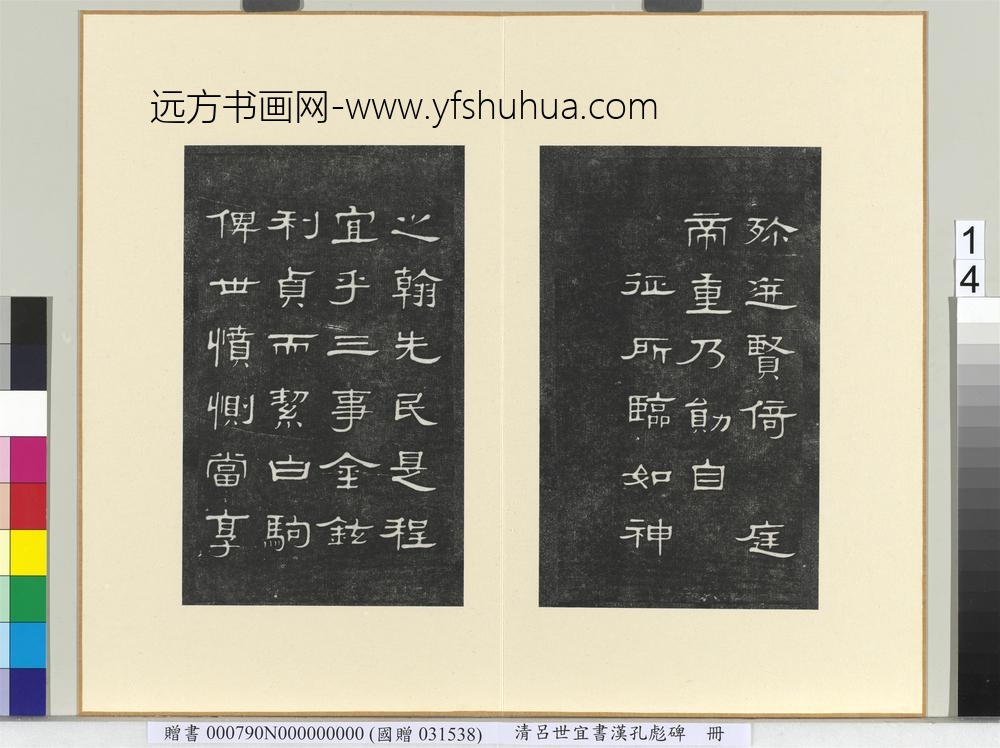 远方书画网-www.yfshuhua.com
殄迸賢倚 庭
帝重乃勛自
征所臨如神
之翰先民是程
宜乎三事金鉉
利貞而絜白駒
俾世憤惻當享
1
4
贈書 000790N000000000 (國贈 031538) 清呂世宜書漢孔彪碑 冊